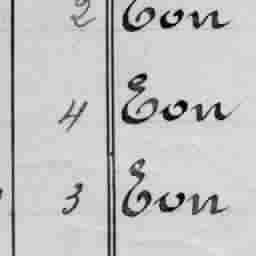 2 Eon
4 Eon
3 Eon